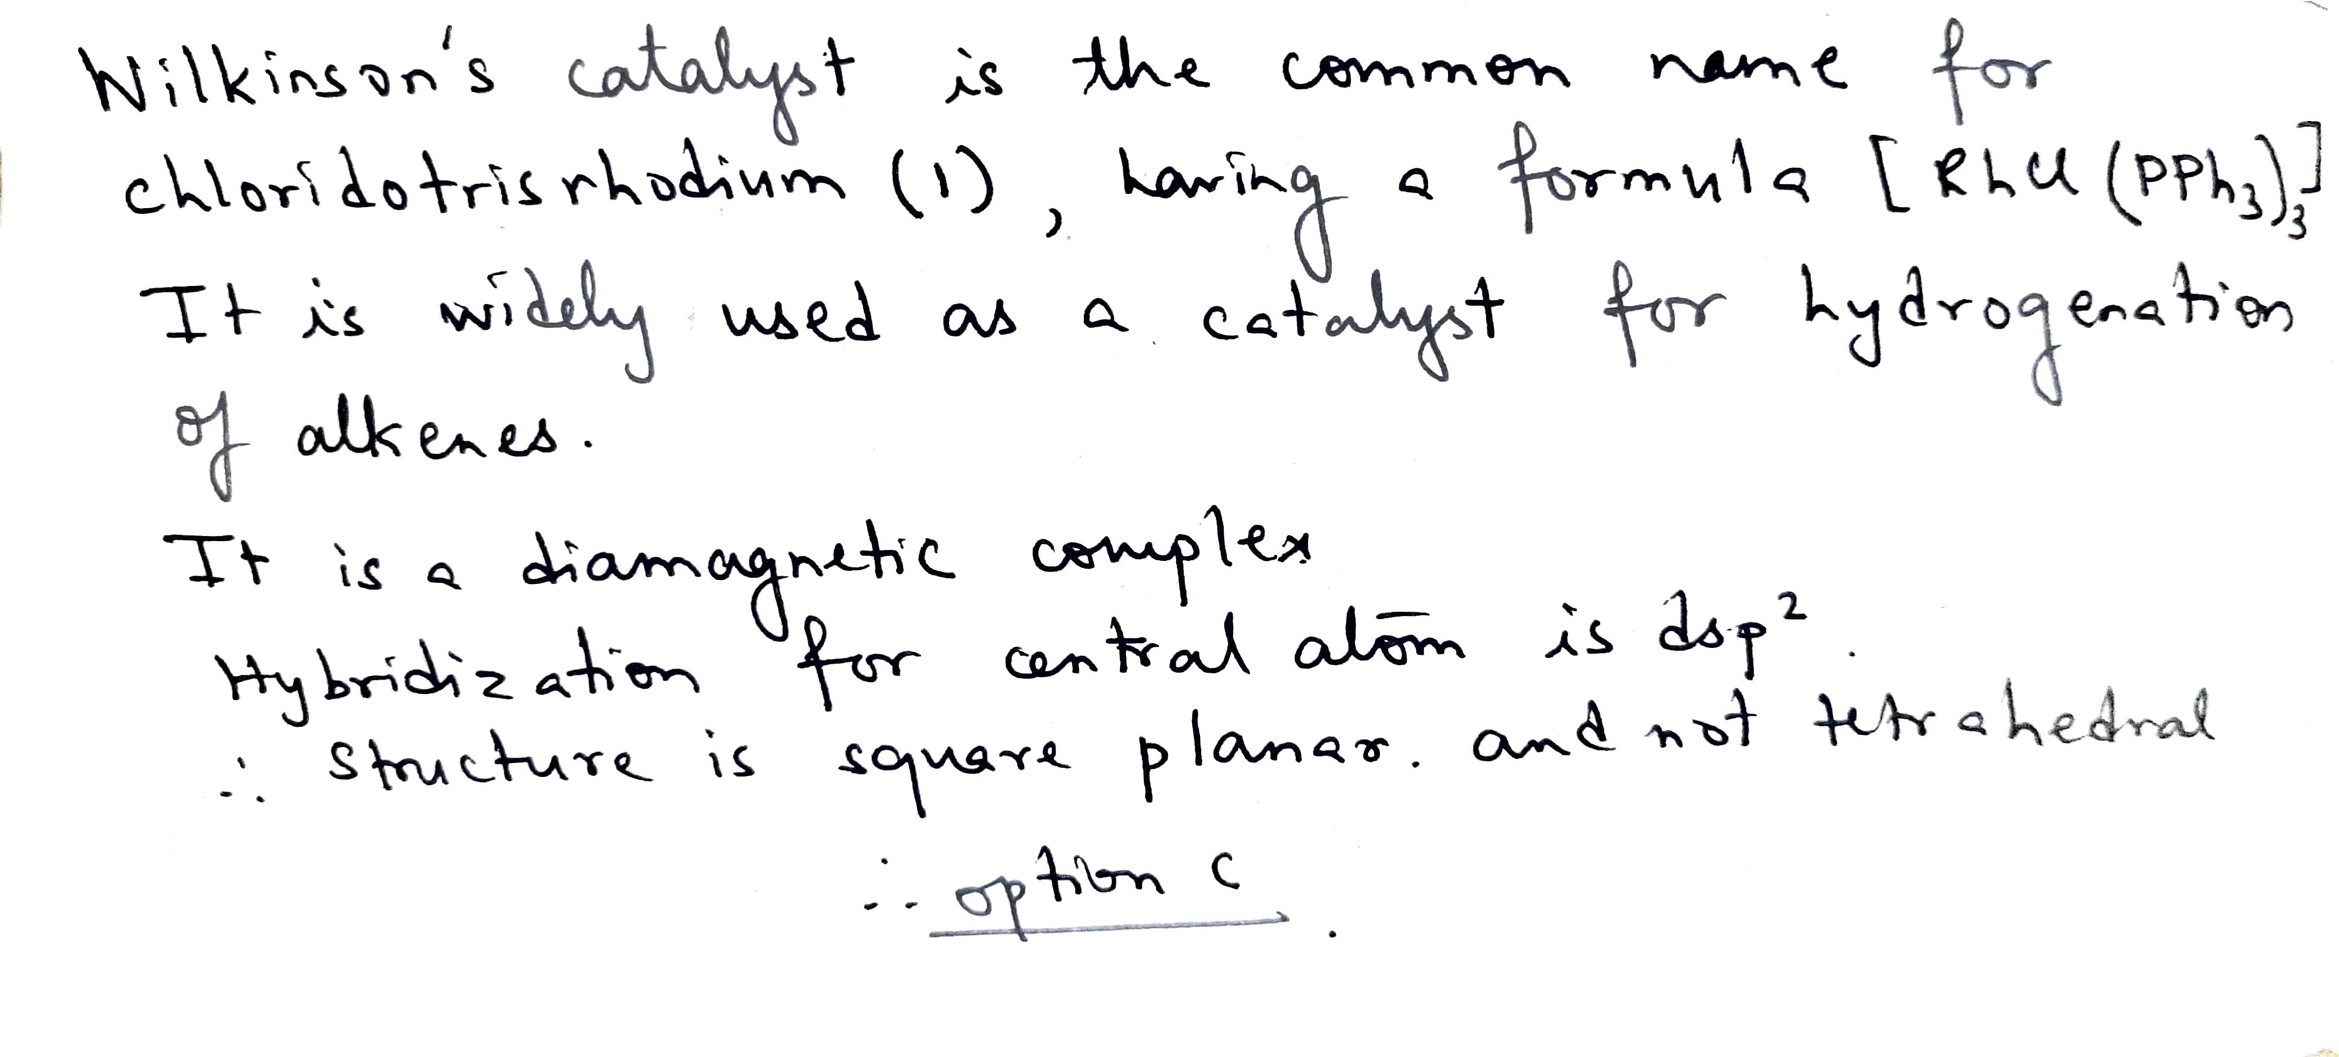 Wilkinson's catalyst is the common name for
chloridotrisrhodium (1), having a formula [RhCl(PPh₃)₃]
It is widely used as a catalyst for hydrogenation
of alkenes.
It is a diamagnetic complex
Hybridization for central atom is dsp².
∴ structure is square planar. and not tetrahedral
∴ option C.